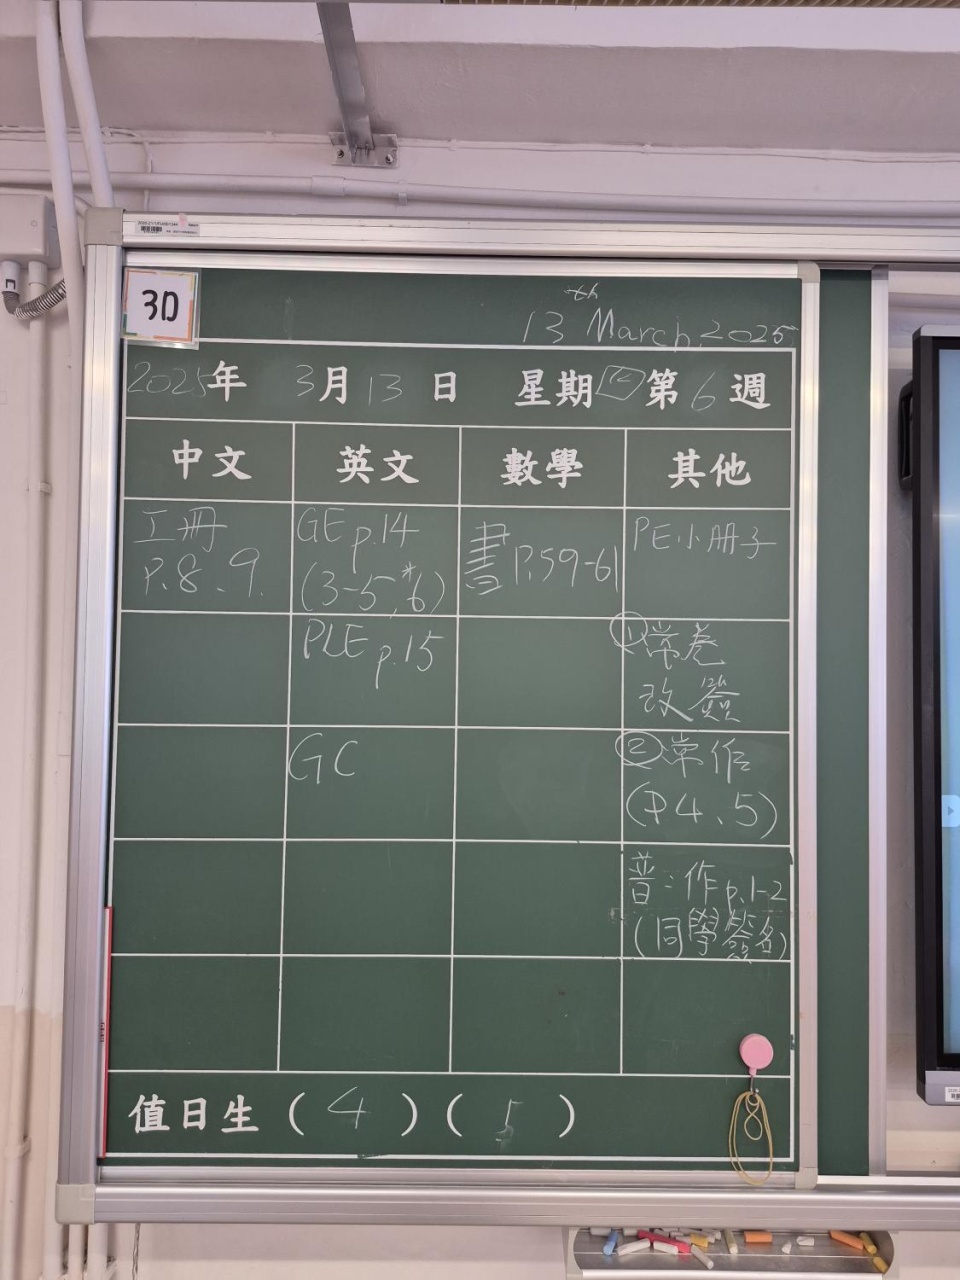 3D
13th March, 2025
2025年 3月13日 星期四 第6週
中文 英文 數學 其他
工冊
P.8、9.
GE p.14
(3-5,*6)
書 P.59-61
PE小冊子
PLE p.15
①常卷
改簽
GC
②常作
(P4、5)
普:作p.1-2
(同學簽名)
值日生(4)(5)